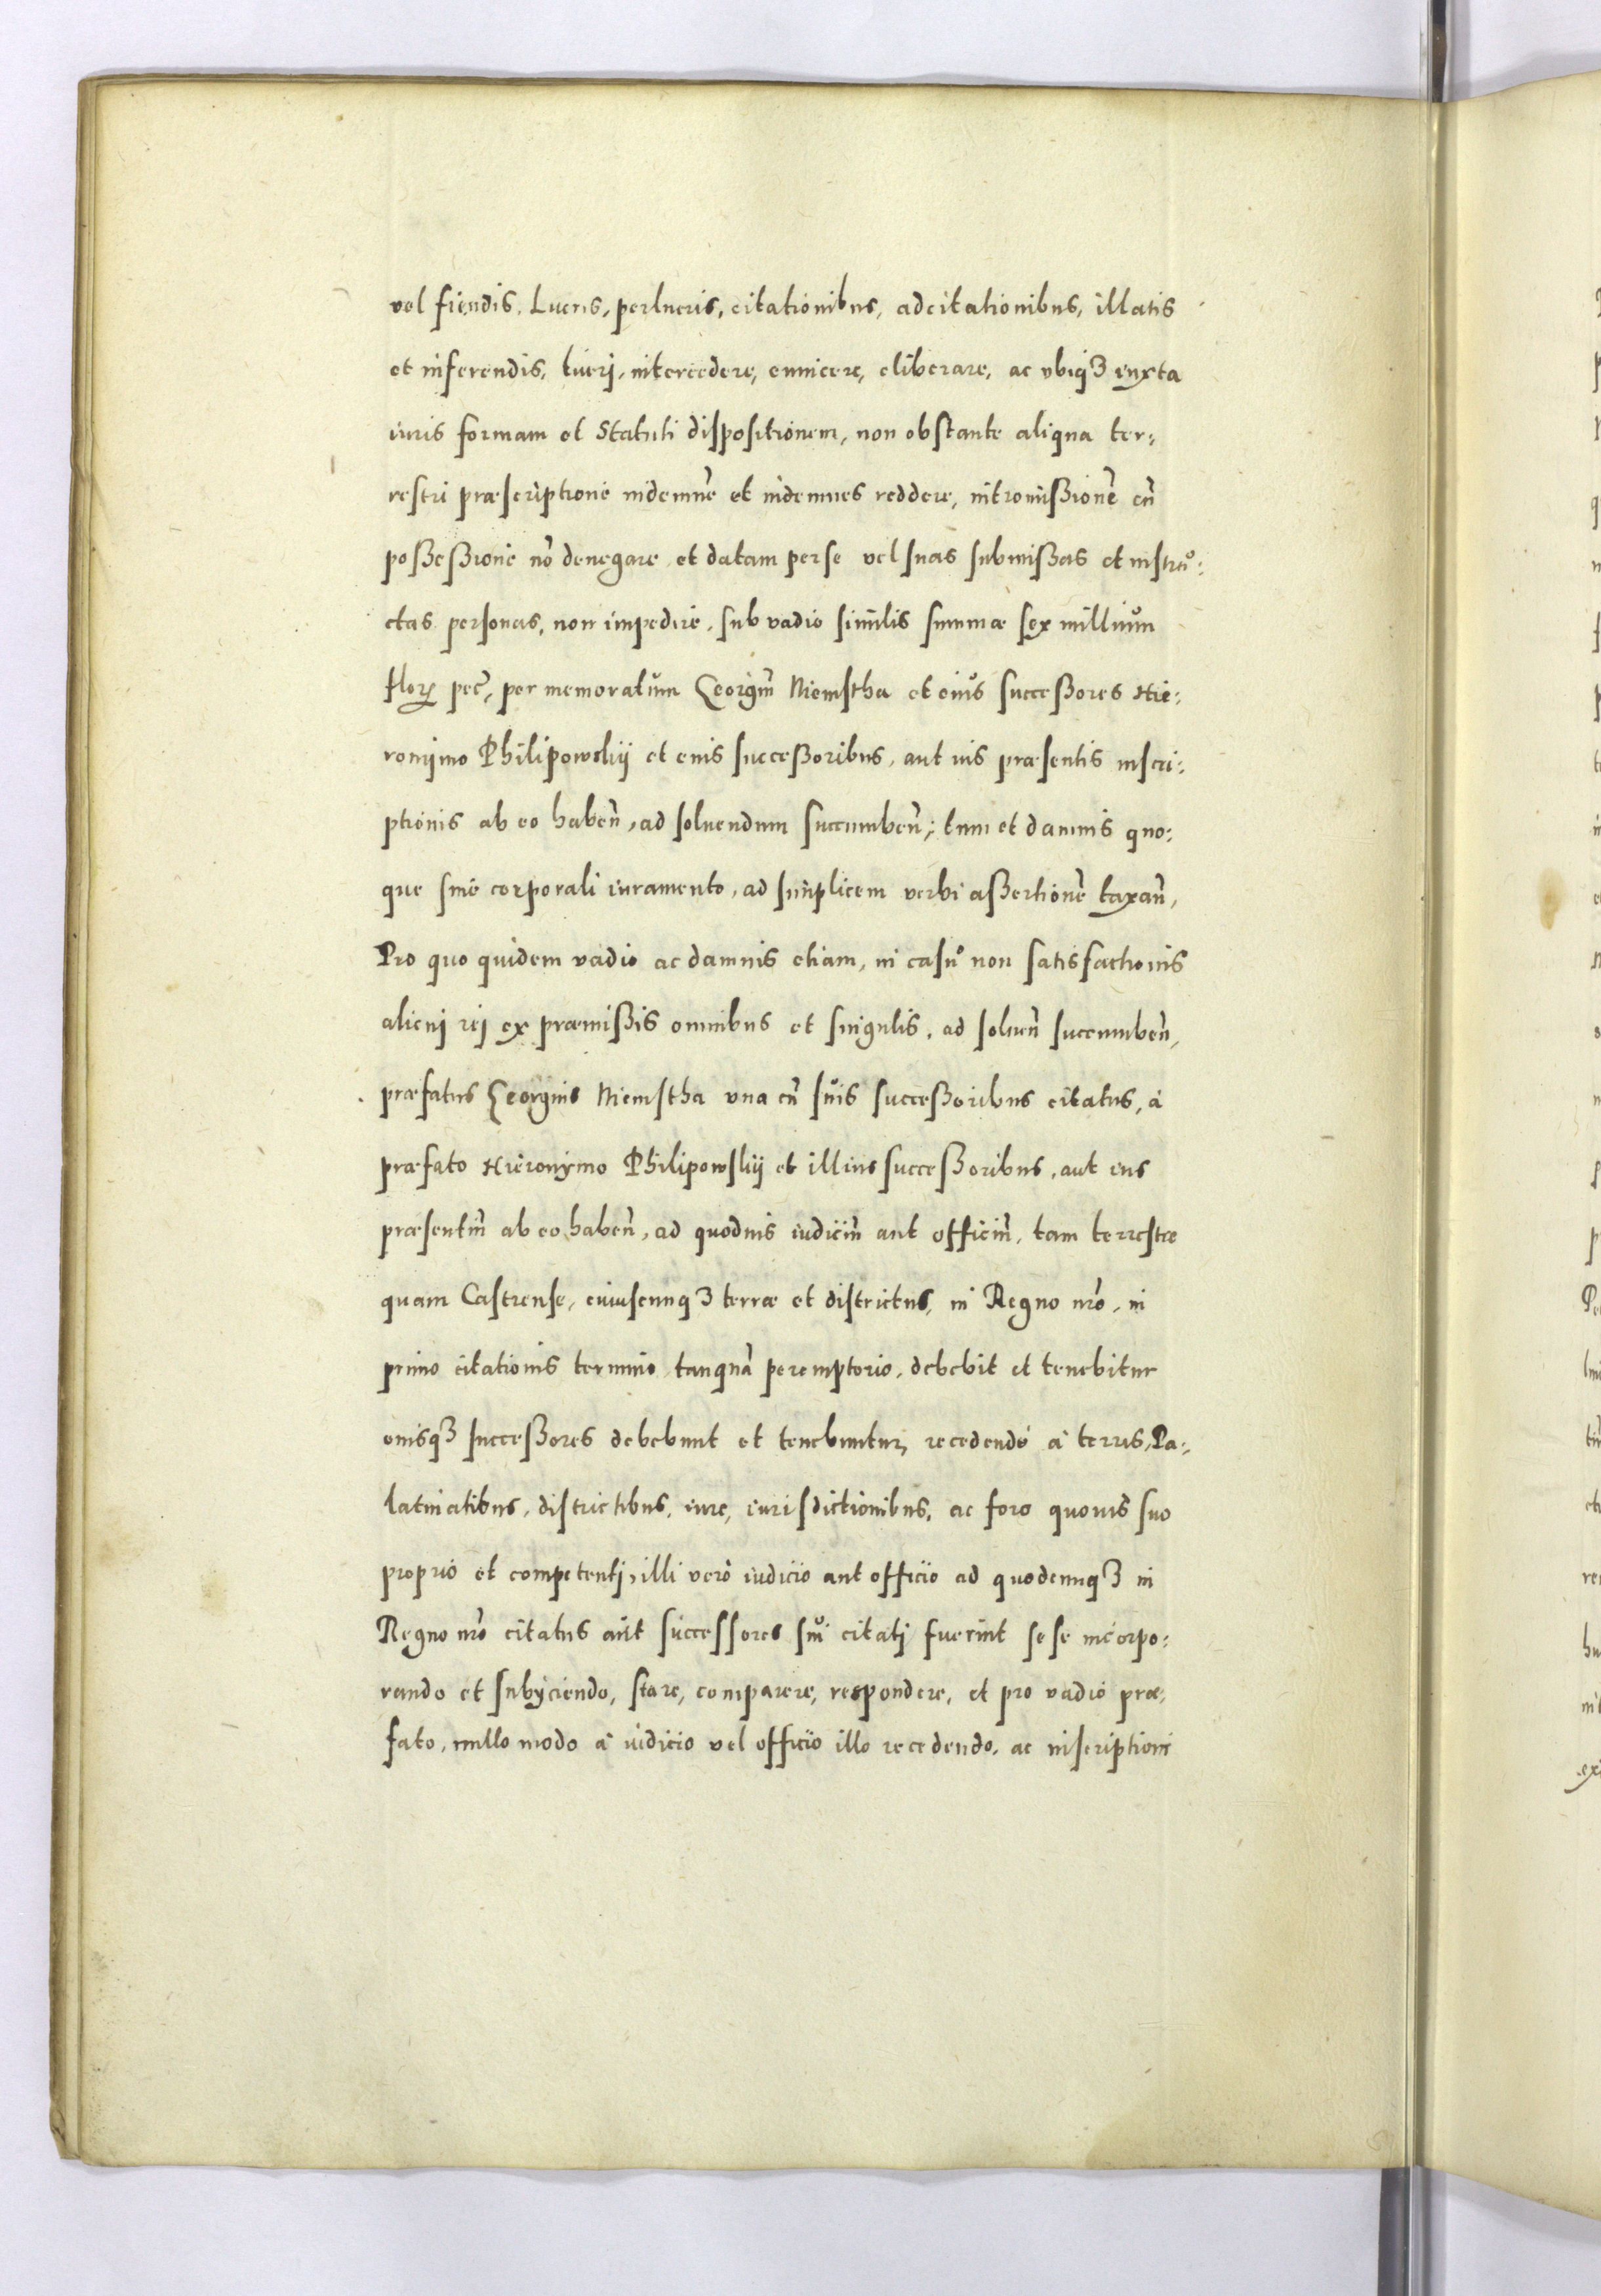 vel fiendis, Lucris, perlucris, citationibus, adcitationibus, illatis
et inferendis, tueri, intercedere, euincere, eliberare, ac vbiqȝ iuxta
iuris formam et Statuti dispositionem, non obstante aliqua ter:
restri præscriptione indemnẽ et indemnes reddere, intromißionẽ cũ
poßeßione nõ denegare et datam per se vel suas submißas et instru:
ctas personas, non impedire, sub vadio similis summæ sex millium
florꝝ pec̃, per memoratum Georgiũ Niemstha et eius succeßores Hie:
ronijmo Philipowskij et euis succeßoribus, aut ius præsentis inscri:
ptionis ab eo habeñ, ad soluendum succumbeñ; tum et damnis quo:
que sine corporali iuramento, ad simplicem verbi aßertionẽ taxañ,
Pro quo quidem vadio ac damnis etiam, in casu non satisfactionis
alicuj rej ex præmißis omnibus et singulis, ad solueñ succumbeñ,
præfatus Georgius Niemstha vna cũ suis succeßoribus citatus, à
præfato Hieronymo Philipowskij et illius succeßoribus, aut ius
præsentiũ ab eo habeñ, ad quoduis iudiciũ aut officiũ, tam terrestre
quam Castrense, cuiuscunqȝ terræ et districtus, in Regno nr̃o, in
primo citationis termino tanquã peremptorio, debebit et tenebitur
eiusqȝ succeßores debebunt et tenebuntur, recedendo à terris, Pa:
latinatibus, districtibus, iure, iurisdictionibus, ac foro quouis suo
proprio et competentj, illi vero iudicio aut officio ad quodcunqȝ in
Regno nr̃o citatus aut successores sui citatj fuerint sese incorpo:
rando et subijciendo, stare, comparere, respondere, et pro vadio præ:
fato, nullo modo à iudicio vel officio illo recedendo, ac inscriptioni